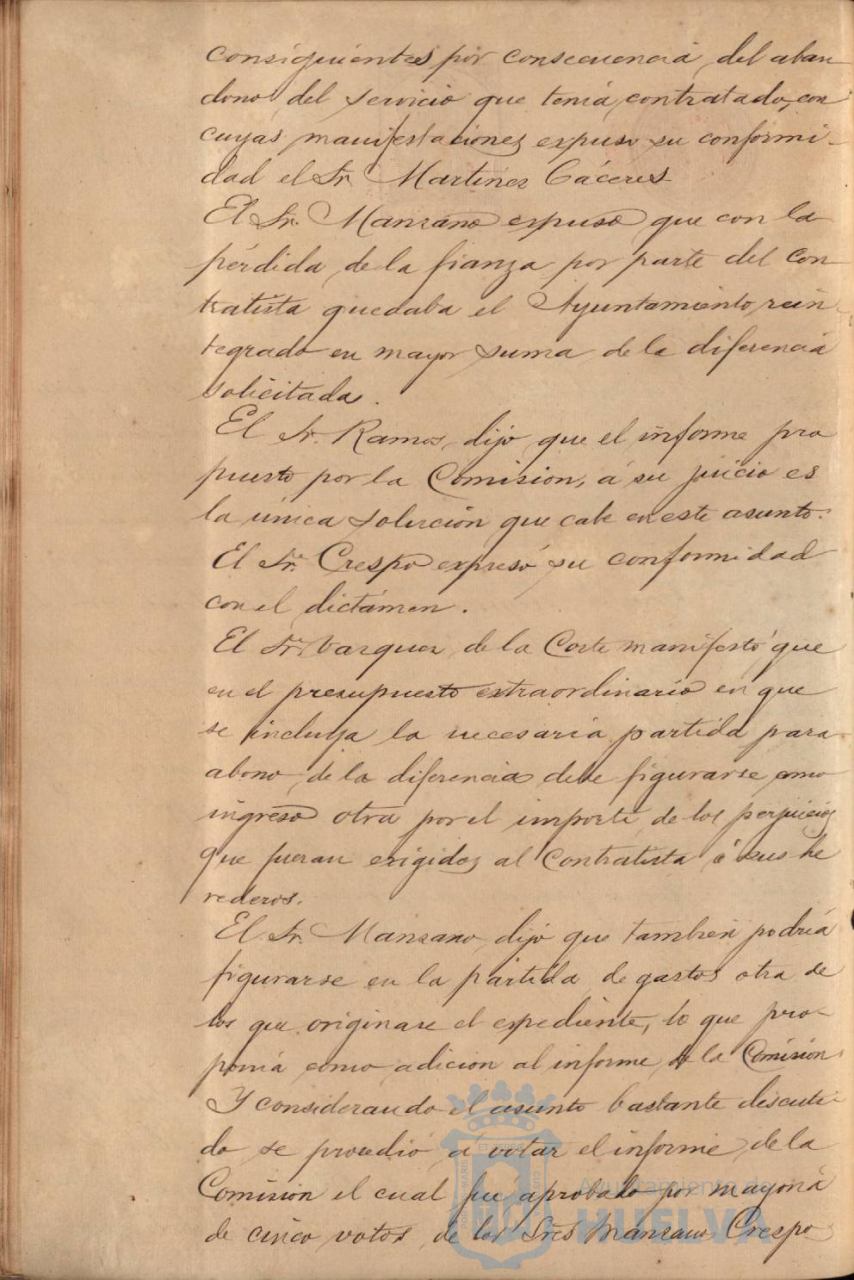 consiguientes por consecuencia del aban
dono del servicio que tenia contratado, con
cuyas manifestaciones expuso su conformi-
dad el Sr. Martinez Cáceres
El Sr. Manzano expuso que con la
pérdida de la fianza por parte del con
tratista quedaba el Ayuntamiento rein-
tegrado en mayor suma de la diferencia
solicitada.
El Sr. Ramos, dijo que el informe pro
puesto por la Comision, á su juicio es
la única solución que cabe en este asunto.
El Sr. Crespo expresó su conformidad
con el dictámen.
El Sr. Vazquez de la Corte manifestó que
en el presupuesto extraordinario en que
se incluya la necesaria partida para
abono de la diferencia debe figurarse como
ingreso otra por el importe de los perjuicios
que fueran exigidos al Contratista ó sus he
rederos.
El Sr. Manzano, dijo que tambien podria
figurarse en la partida de gastos otra de
los que originase el expediente, lo que pro-
ponia como adicion al informe de la Comision
Y considerando el asunto bastante discuti-
do se procedió á votar el informe de la
Comision el cual fue aprobado por mayoria
de cinco votos de los Sres Manzano, Crespo
Ayuntamiento de
HUELVA